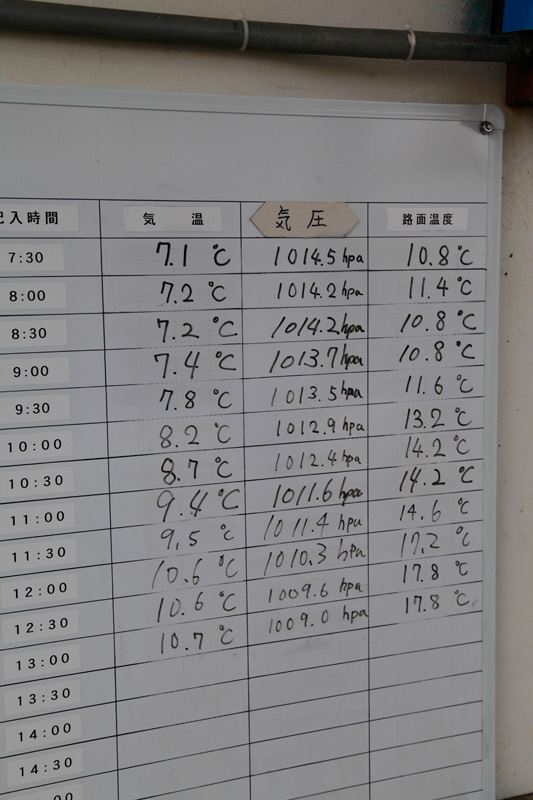 記入時間 気温 気圧 路面温度
7:30 7.1 ℃ 1014.5 hpa 10.8 ℃
8:00 7.2 ℃ 1014.2 hpa 11.4 ℃
8:30 7.2 ℃ 1014.2 hpa 10.8 ℃
9:00 7.4 ℃ 1013.7 hpa 10.8 ℃
9:30 7.8 ℃ 1013.5 hpa 11.6 ℃
10:00 8.2 ℃ 1012.9 hpa 13.2 ℃
10:30 8.7 ℃ 1012.4 hpa 14.2 ℃
11:00 9.4 ℃ 1011.6 hpa 14.2 ℃
11:30 9.5 ℃ 1011.4 hpa 14.6 ℃
12:00 10.6 ℃ 1010.3 hpa 17.2 ℃
12:30 10.6 ℃ 1009.6 hpa 17.8 ℃
13:00 10.7 ℃ 1009.0 hpa 17.8 ℃
13:30
14:00
14:30